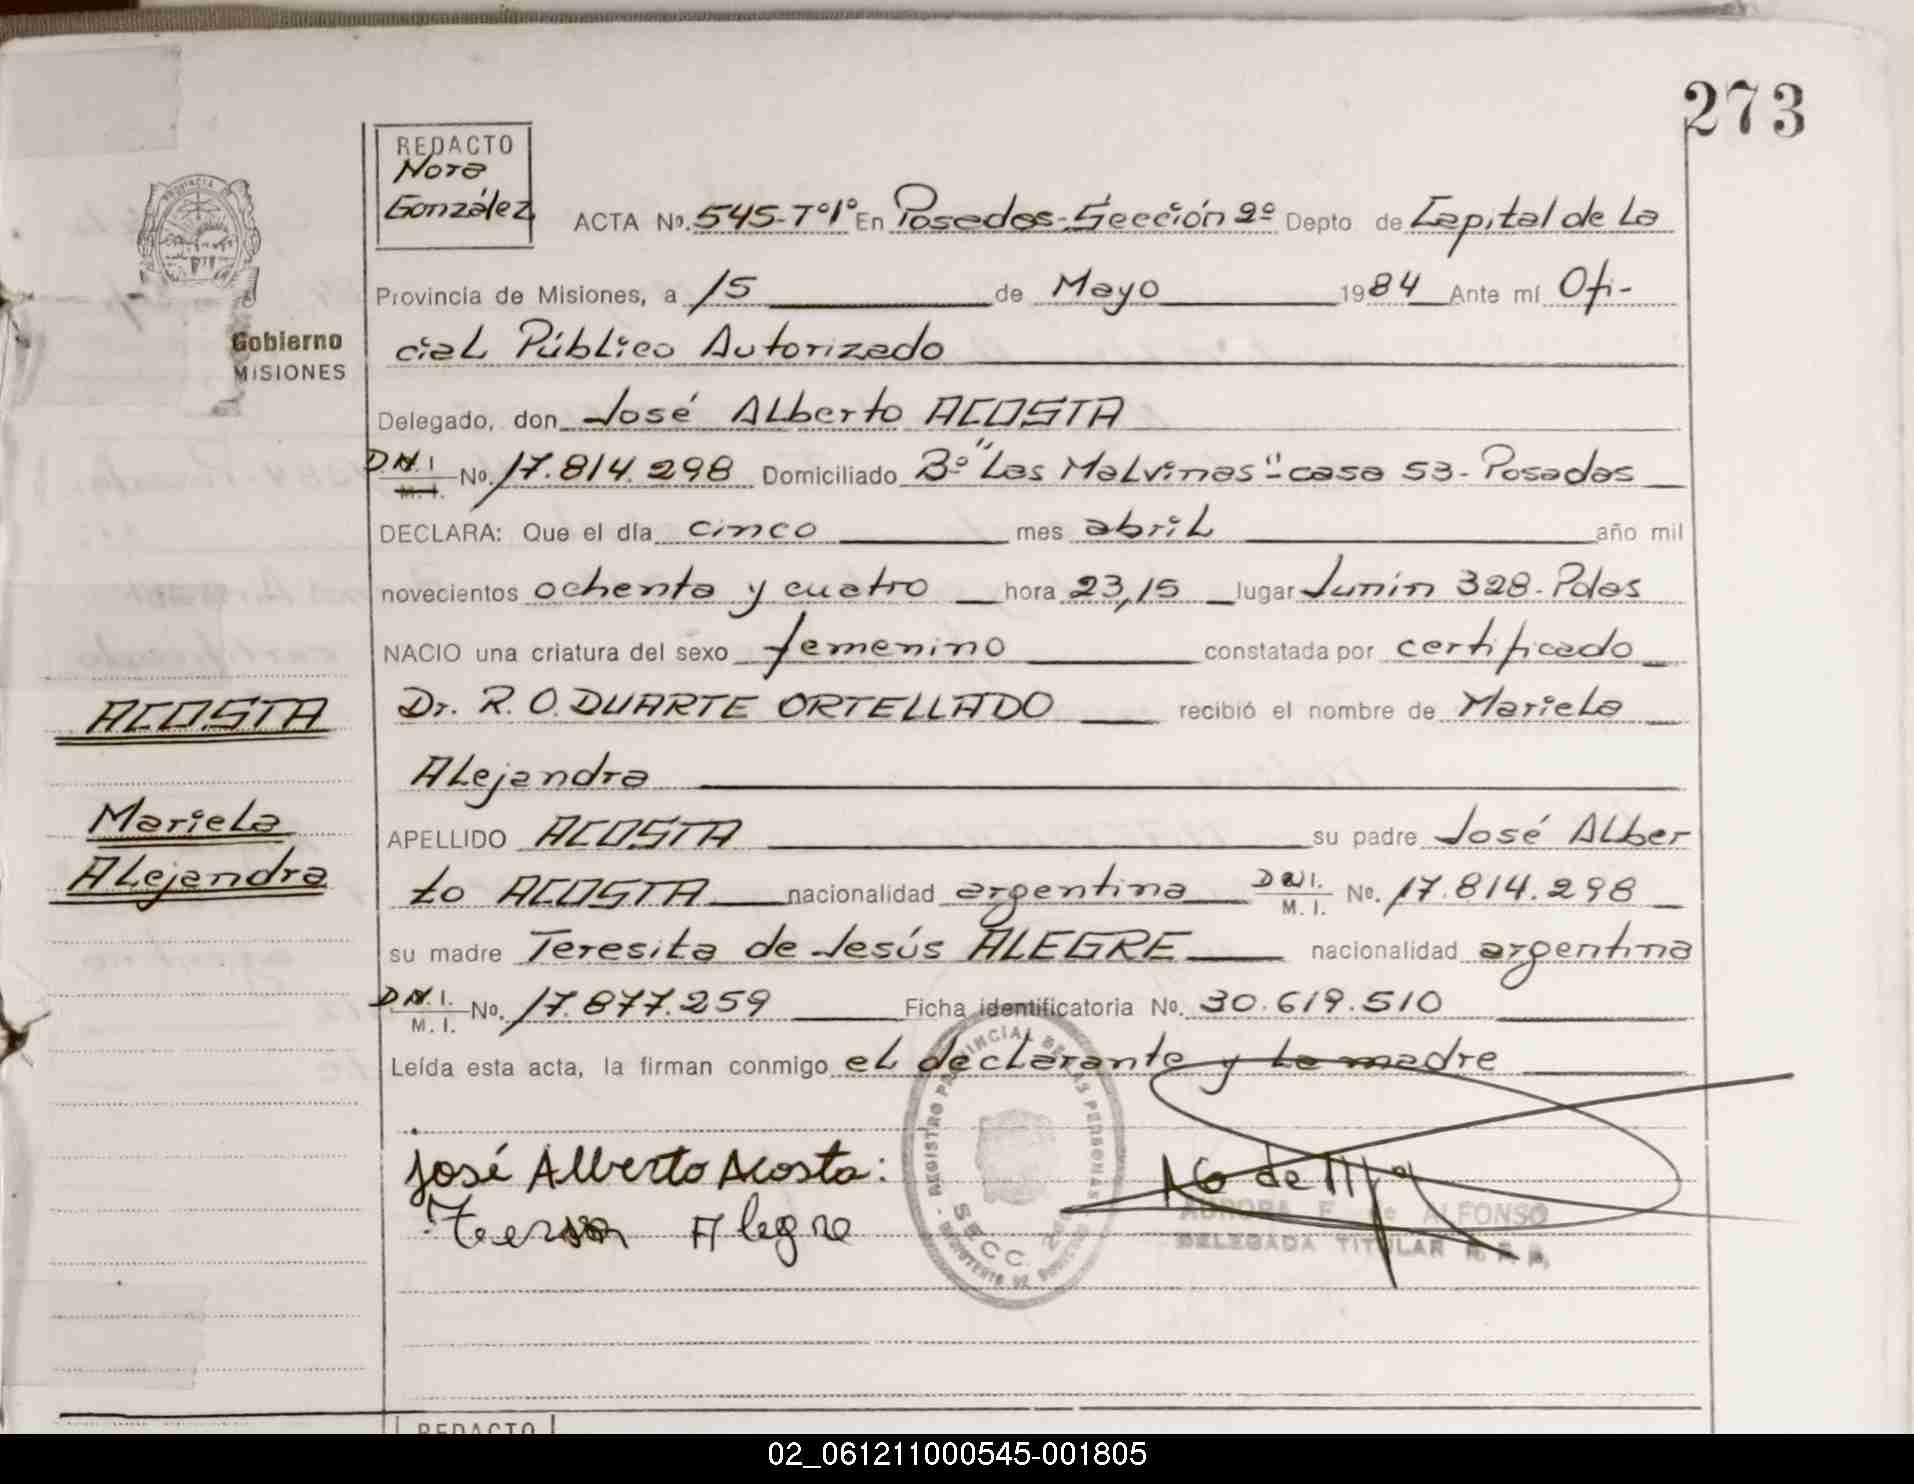 273
REDACTO
Nora
González
ACTA Nº. 545-Tº1º En Posadas-Sección 2º Depto de Capital de La
Provincia de Misiones, a 15 de Mayo 1984 Ante mí Ofi-
Gobierno
MISIONES
cial Público Autorizado
Delegado, don José Alberto ACOSTA
DNI
M.I. No. 17.814.298 Domiciliado Bº "Las Malvinas"-casa 53-Posadas
DECLARA: Que el día cinco mes abril año mil
novecientos ochenta y cuatro hora 23,15 lugar Junín 328-Pdas
NACIO una criatura del sexo femenino constatada por certificado
ACOSTA
Dr. R. O. DUARTE ORTELLADO recibió el nombre de Mariela
Alejandra
Mariela
Alejandra
APELLIDO ACOSTA su padre José Alber
to ACOSTA nacionalidad argentina DNI.
M. I. No. 17.814.298
su madre Teresita de Jesús ALEGRE nacionalidad argentina
DNI.
M. I. No. 17.877.259 Ficha identificatoria No. 30.619.510
Leída esta acta, la firman conmigo el declarante y la madre
José Alberto Acosta:
Alegre
REGISTRO PROVINCIAL DE LAS PERSONAS
SECC. 2da
AURORA F. de ALFONSO
DELEGADA TITULAR R. P. P.
REDACTO
02_061211000545-001805